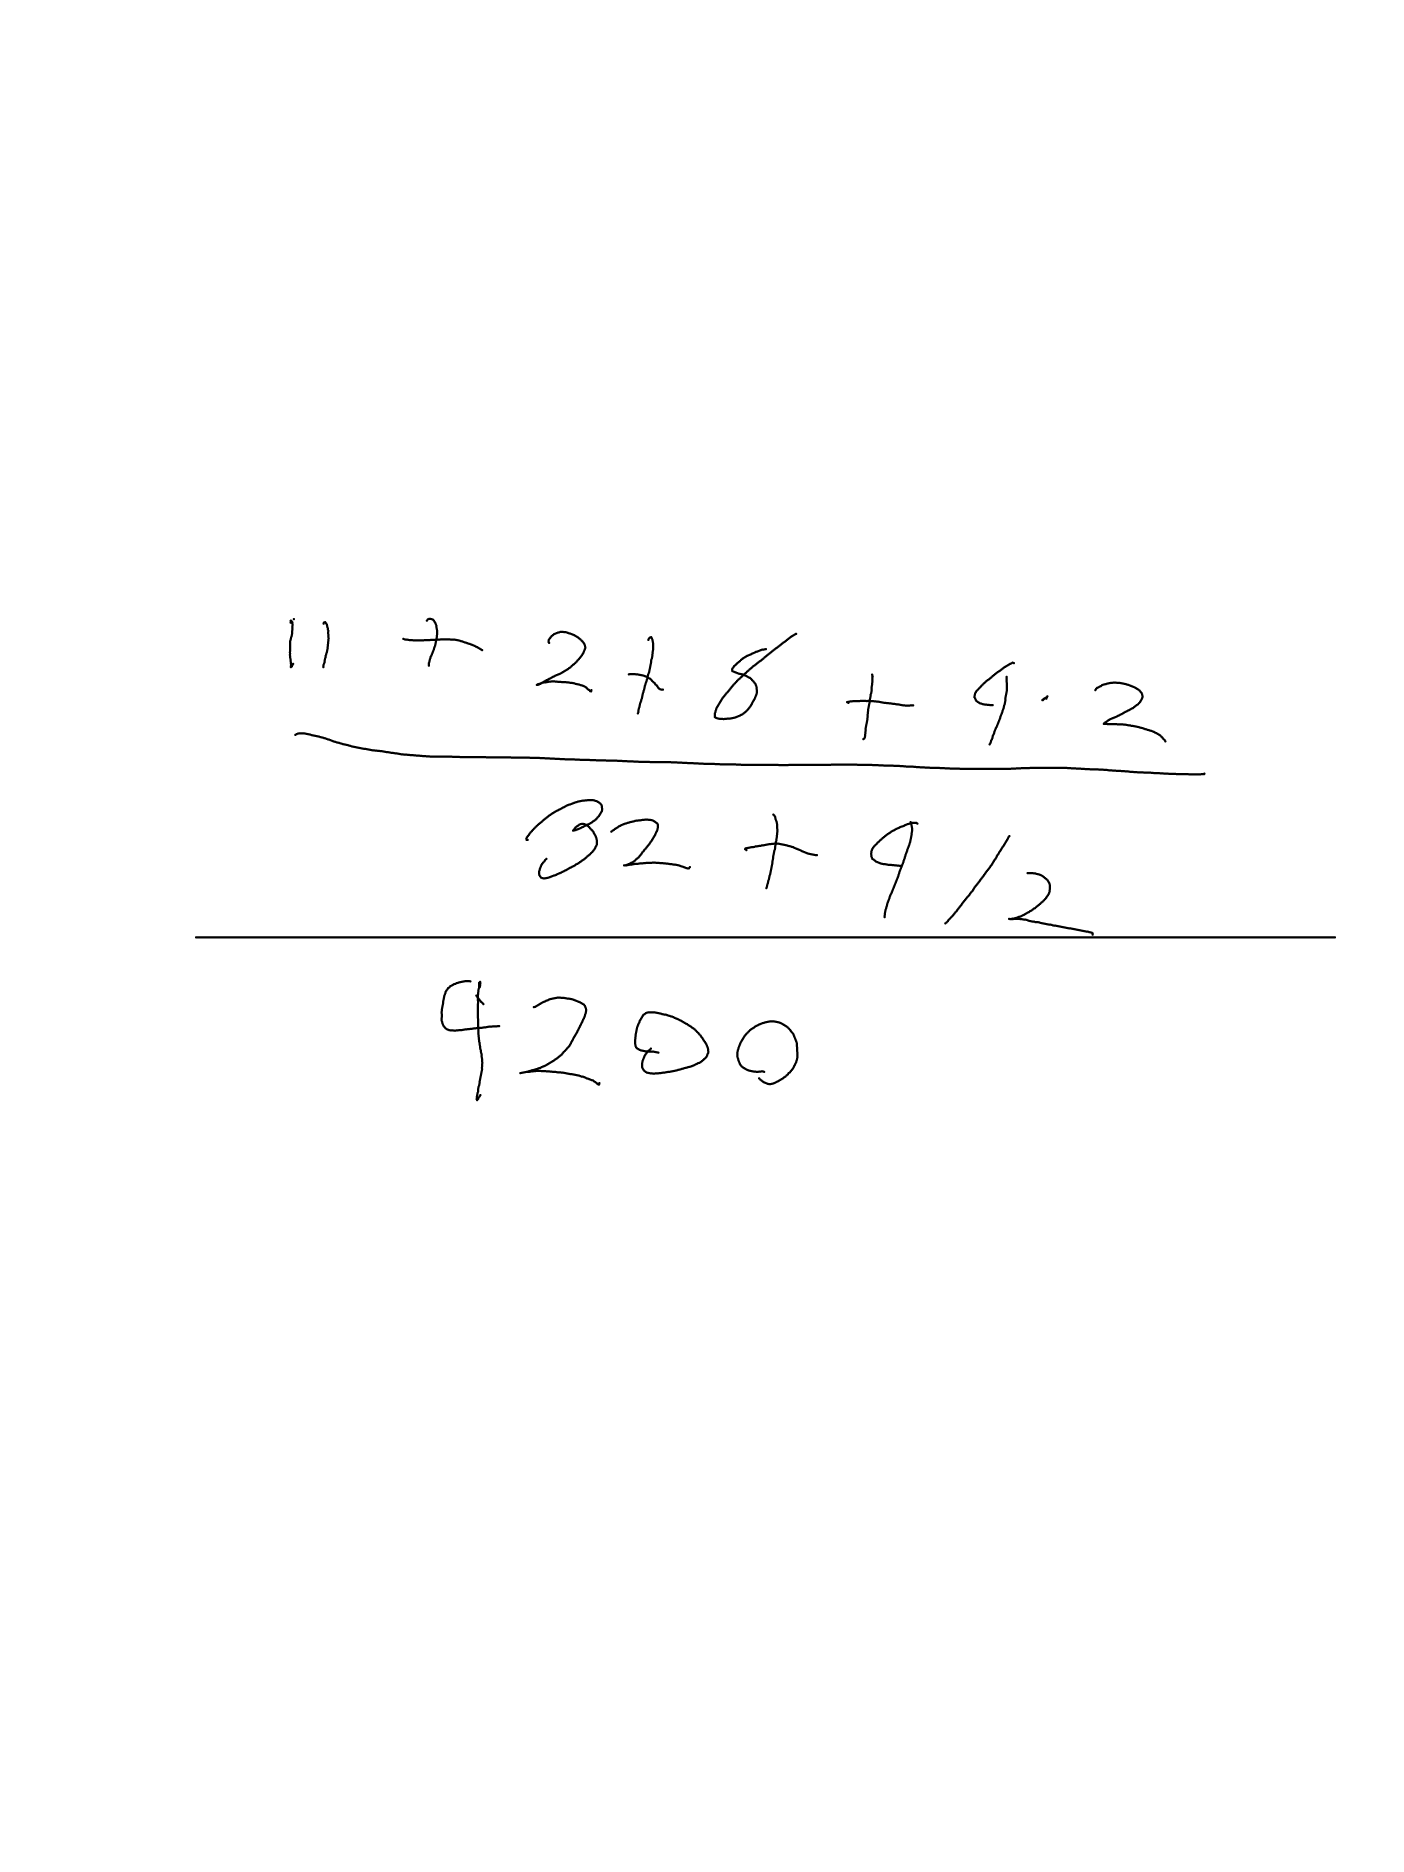 11 + 2 + 8 + 9 · 2
32 + 9 / 2
4200